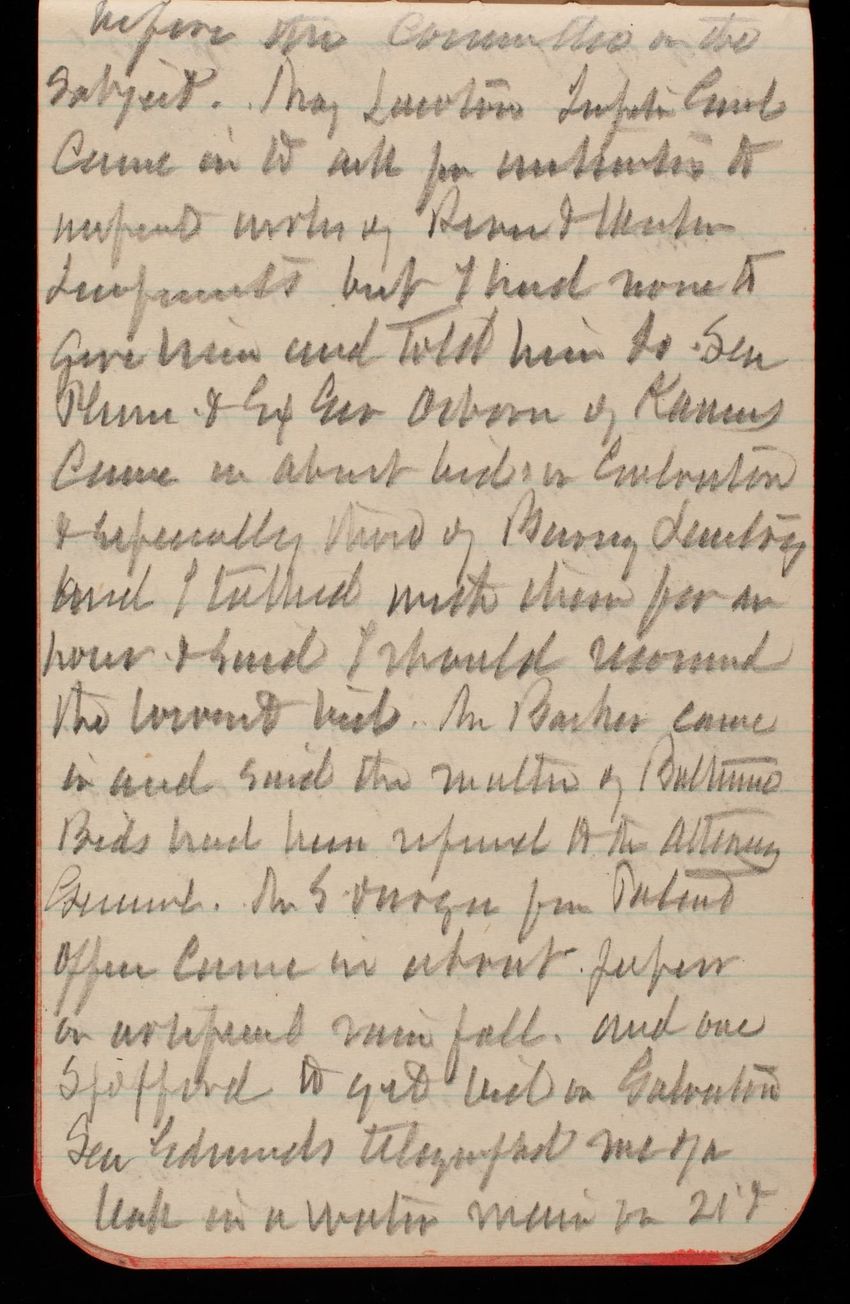 before the Committee on the
Subject. Maj
Came in to ask for authority to
inspect works of River & Harbor
Improvements but I had none to
give him and told him so. Sen
Plumb & Ex Gov Osborn of Kansas
Came in about bids in Galveston
& especially that of Barney
and I talked with them for an
hour & said I should recommend
the lowest bid. Mr Barker came
in and said the matter of Baltimore
Bids had been referred to the Attorney
General. Mr from Patent
Office came in about papers
on artificial rain fall. and one
Spofford to get bid on Galveston
Sen Edmunds telegraphed me of a
leak in a water main on 21st